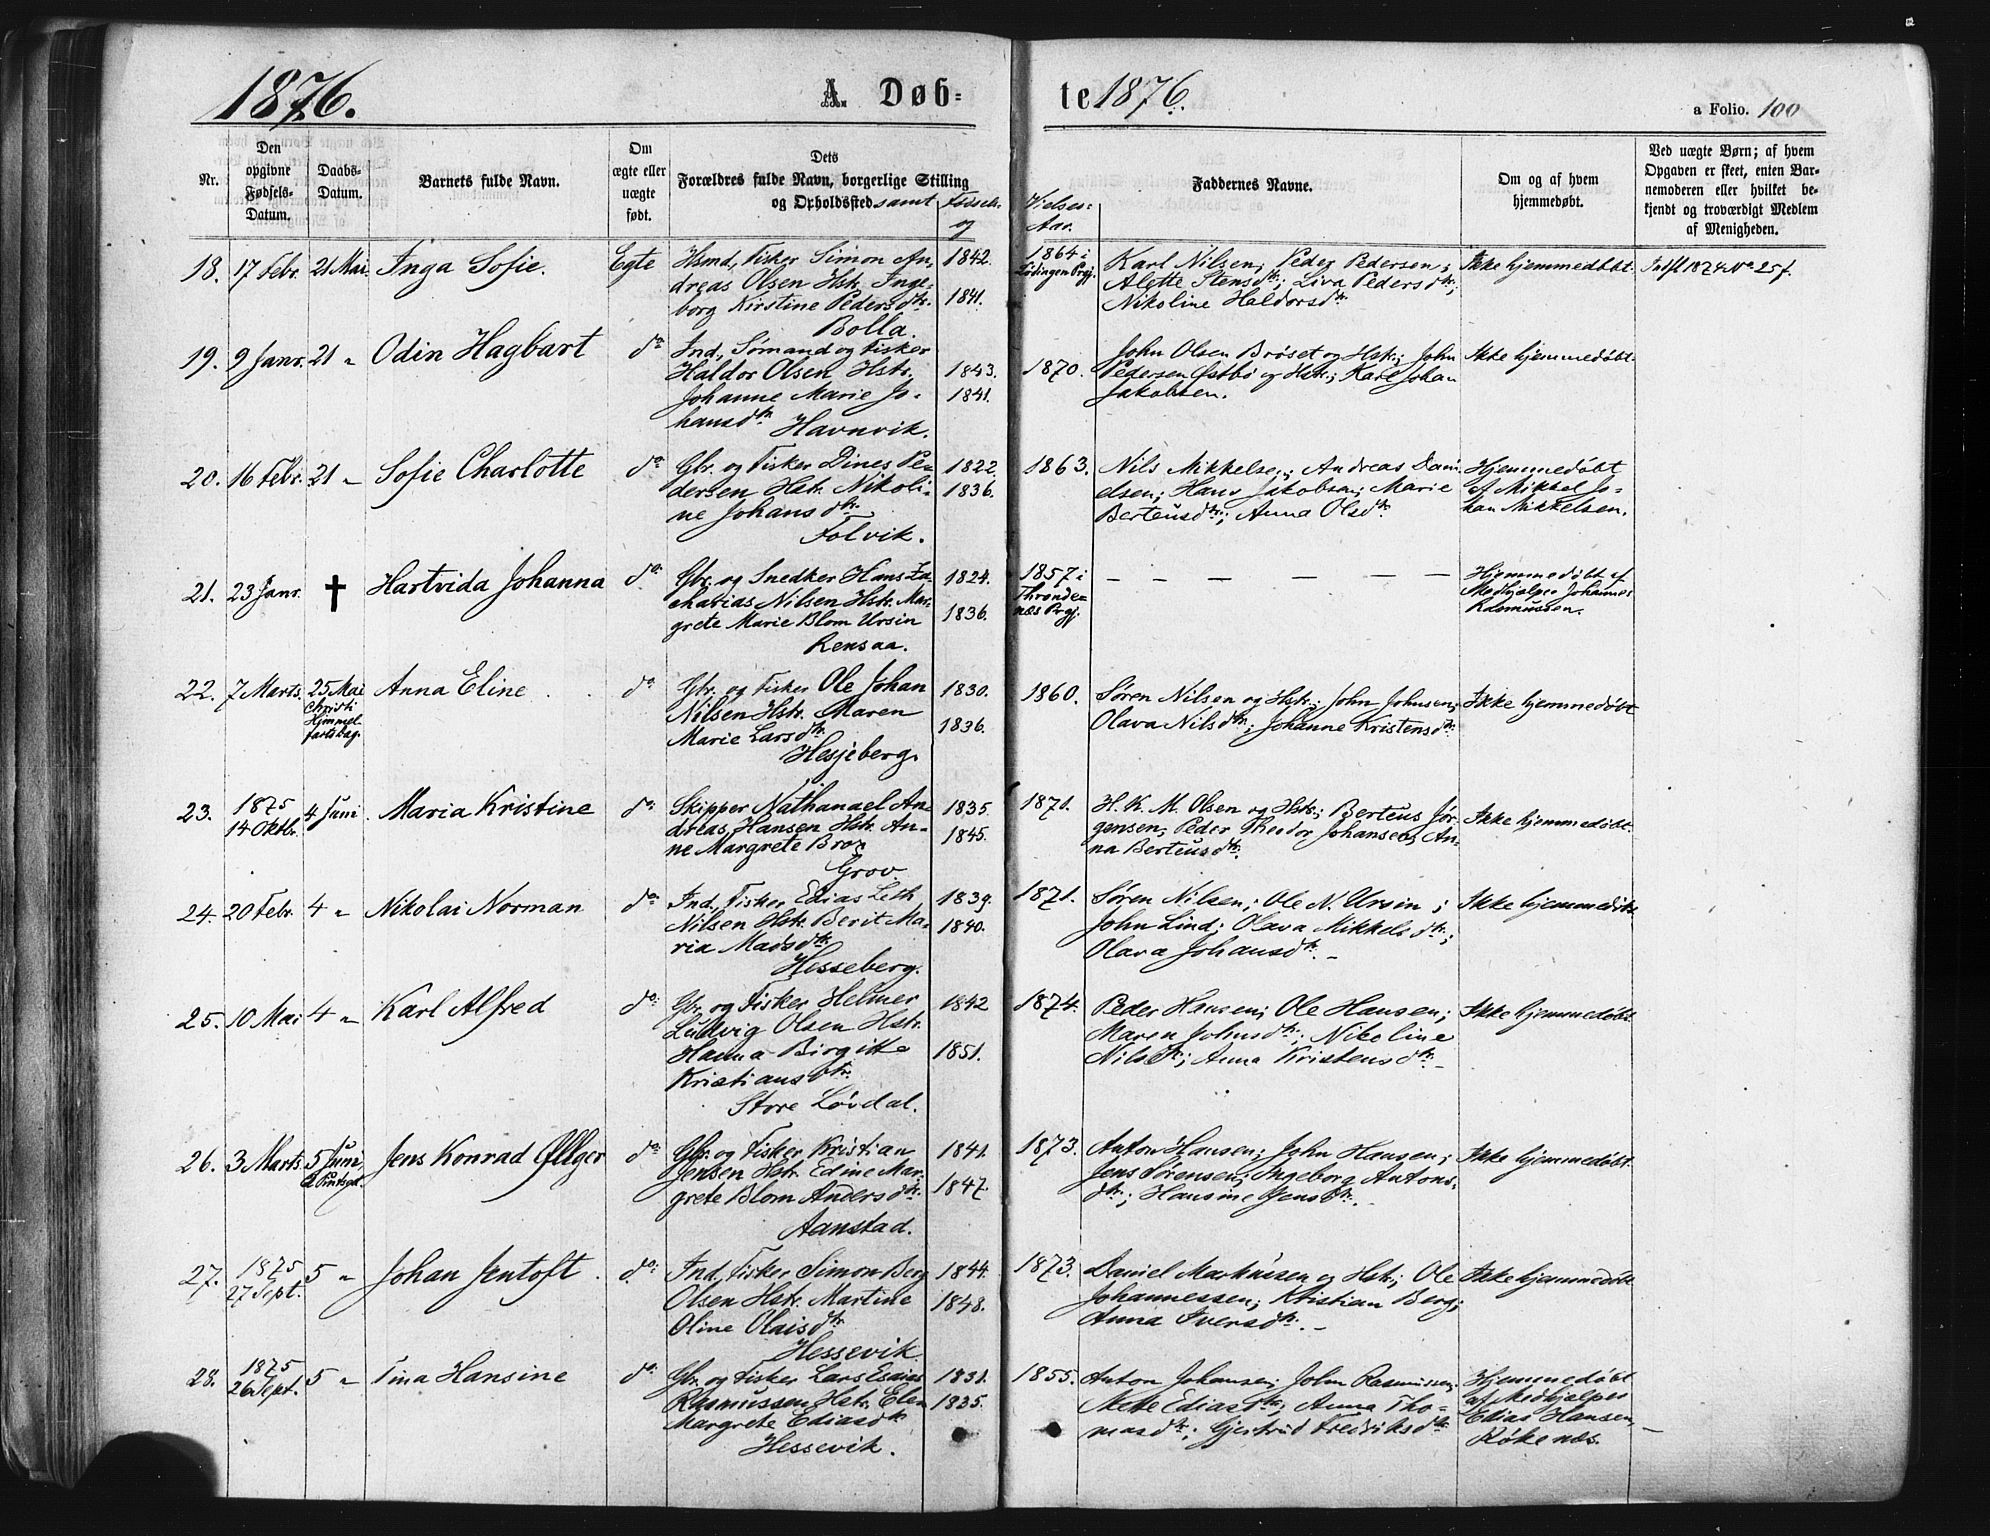 1876. A. Døb- te 1876. a Folio. 100
Nr.
Den opgivne Fødsels-Datum.
Daabs-Datum.
Barnets fulde Navn.
Om ægte eller uægte født.
Dets Forældres fulde Navn, borgerlige Stilling og Opholdssted samt Fødsels- og
Vielses-Aar.
Faddernes Navne.
Om og af hvem hjemmedøbt.
Ved uægte Børn; af hvem Opgaven er skeet, enten Barnemoderen eller hvilket bekjendt og troværdigt Medlem af Menigheden.
18. 17 Febr. 21 Mai Inga Sofie. Egte
Hsmd, Fisker Simon An- 1842.
dreas Olsen Hstr. Inge-
borg Kirstine Pedersdtr. 1841.
Bolla.
1864 i
Lødingen Prgj.
Karl Nilsen; Peder Pedersen;
Alette Stensdtr; Liva Pedersdtr;
Nikoline Haldorsdtr
Ikke hjemmedøbt. Indft 1874 No 25 f.
19. 9 Janr. 21 " Odin Hagbart do
Ind, Sømand og Fisker
Haldor Olsen Hstr. 1843.
Johanne Marie Jo- 1841.
hansdtr
Havnvik.
1870.
John Olsen Brøset og Hstr; John
Pedersen Østbö og Hstr; Karl Johan
Jakobsen.
Ikke hjemmedøbt
20. 16 Febr. 21 " Sofie Charlotte do
Gbr. og Fisker Dines Pe- 1822
dersen Hstr. Nikoli- 1836.
ne Johansdtr.
Folvik.
1863.
Nils Mikkelsen; Andreas Dani-
elsen; Hans Jakobsen; Marie
Berteusdtr; Anna Olsdtr
Hjemmedøbt
af Mikkel Jo-
han Mikkelsen.
21. 23 Janr. † Hartvida Johanna do
Gbr. og Snedker Hans Za- 1824.
charias Nilsen Hstr. Mar-
grete Marie Blom Ursin 1836.
Rensaa.
1857 i
Thronde-
næs Prgj.
– – – – – –
Hjemmedøbt af
Medhjælper Johannes
Rasmussen.
22. 7 Marts. 25 Mai Christi Himmel-fartsdag. Anna Eline do
Gbr. og Fisker Ole Johan 1830.
Nilsen Hstr. Maren
Marie Larsdtr 1836.
Hesjeberg.
1860.
Søren Nilsen og Hstr; John Johnsen;
Olava Nilsdtr; Johanne Kristensdtr
Ikke hjemmedøbt
23. 1875 14 Oktbr. 4 Juni Maria Kristine do
Skipper Nathanael An- 1835
dreas Hansen Hstr. An- 1845.
ne Margrete Brox
Grov.
1871.
H. K. M. Olsen og Hstr; Berteus Jør-
gensen; Peder Theodor Johansen; An-
na Berteusdtr.
Ikke hjemmedøbt.
24. 20 Febr. 4 " Nikolai Norman do
Ind, Fisker Edias Leth 1839.
Nilsen Hstr. Berit Ma- 1840.
ria Madsdtr
Hesseberg.
1871.
Søren Nilsen; Ole N. Ursin;
John Lind; Olava Mikkelsdtr;
Olava Johansdtr. –
Ikke hjemmedøbt.
25. 10 Mai 4 " Karl Alfred do
Gbr, og Fisker Helmer 1842
Ludvig Olsen Hstr.
Hanna Birgitte 1851.
Kristiansdtr.
Store Løvdal.
1874.
Peder Hansen; Ole Hansen;
Maren Johnsdtr; Nikoline
Nilsdtr; Anna Kristensdtr. –
Ikke hjemmedøbt.
26. 3 Marts 5 Juni 2 Pintsed. Jens Konrad Øllger do
Gbr. og Fisker Kristian 1841.
Jensen Hstr. Edine Mar-
grete Blom Andersdtr. 1847.
Aanstad.
1873.
Anton Hansen; John Hansen;
Jens Sørensen; Ingeborg Antons-
dtr; Hansine Jensdtr. –
Ikke hjemmedøbt.
27. 1875 27 Sept. 5 " Johan Jentoft do
Ind, Fisker Simon Berg 1844.
Olsen Hstr. Martine 1848.
Oline Olaisdtr
Hessevik
1873.
Daniel Markussen og Hstr; Ole
Johannessen; Kristian Berg;
Anna Iversdtr. –
Ikke hjemmedøbt
28. 1875 26 Sept. 5 " Tina Hansine do
Gbr. og Fisker Lars Esaias 1831.
Rasmussen Hstr. Elen 1835.
Margrete Ediasdtr
Hessevik.
1855.
Anton Johansen; John Rasmussen;
Mette Ediasdtr; Anna Tho-
masdtr; Gjertrud Fredriksdtr
Hjemmedøbt
af Medhjælper
Edias Hansen,
Røkenæs.